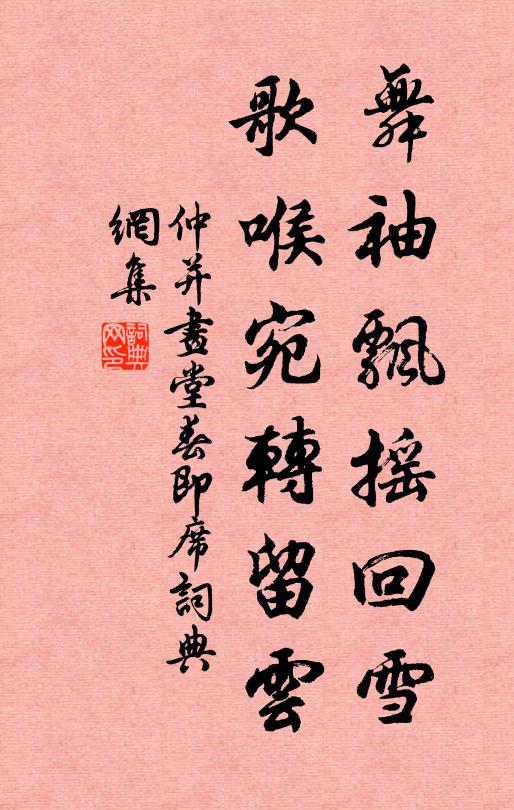 舞袖飄摇回雪
歌喉宛轉留雲
仲并畫堂春即席詞典
網集
詞典网印